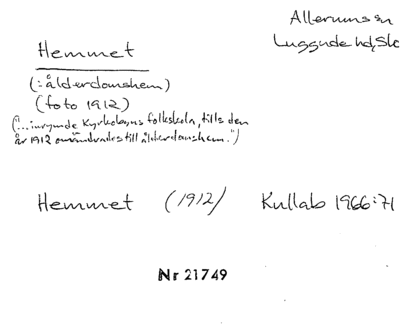 Allerums sn
Luggude hd, Sk
Hemmet
(: ålderdomshem)
(foto 1912)
("... inrymde Kyrkobyns folkskola, tills den
år 1912 omändrades till ålderdomshem.")
Hemmet (1912) Kullab 1966:71
Nr 21749